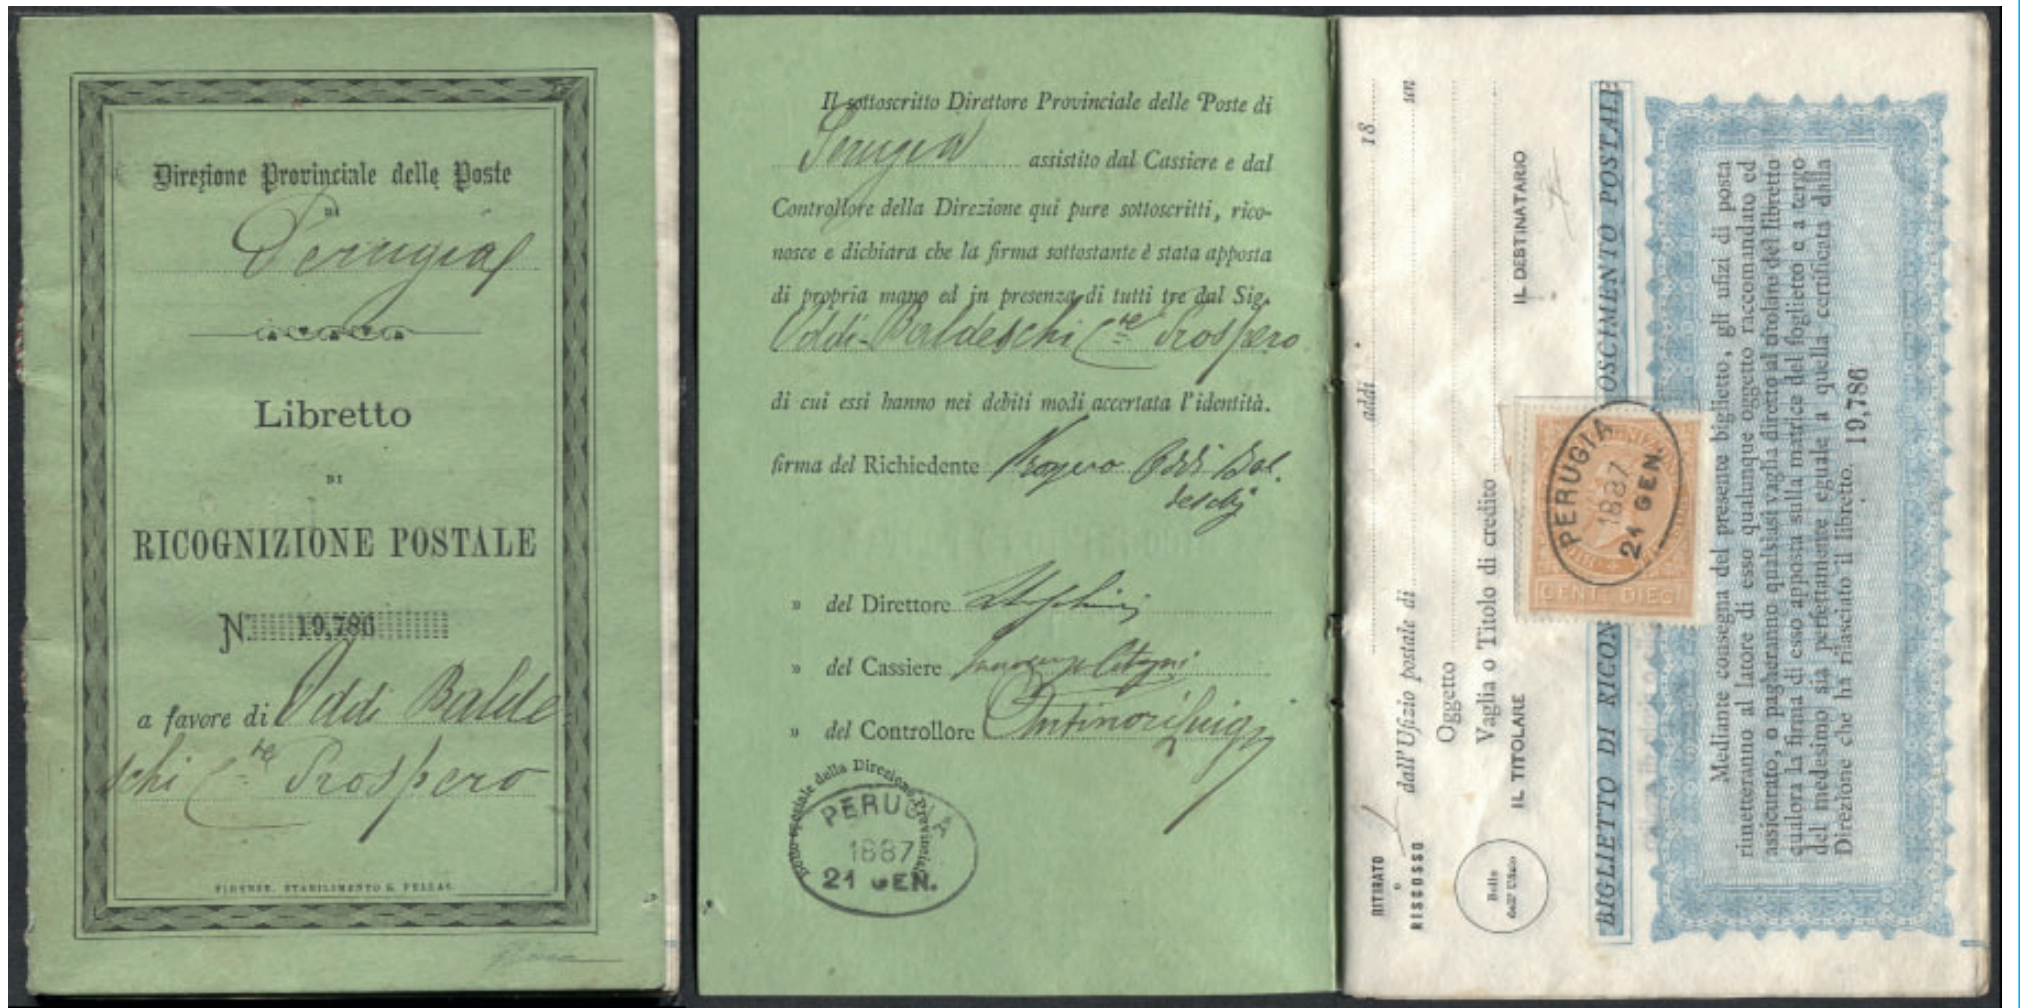 Direzione Provinciale delle Poste
DI
Perugia
Libretto
DI
RICOGNIZIONE POSTALE
N. 19,786
a favore di Oddi Balde-
schi Cte Prospero
FIRENZE, STABILIMENTO G. PELLAS.
Il sottoscritto Direttore Provinciale delle Poste di
Perugia assistito dal Cassiere e dal
Controllore della Direzione qui pure sottoscritti, rico-
nosce e dichiara che la firma sottostante è stata apposta
di propria mano ed in presenza di tutti tre dal Sig.
Oddi-Baldeschi Cte Prospero
di cui essi hanno nei debiti modi accertata l'identità.
firma del Richiedente Prospero Oddi Bal-
deschi
» del Direttore
» del Cassiere
» del Controllore Antinori Luigi
Bollo speciale della Direzione Provinciale
PERUGIA
1887
21 GEN.
RITIRATO
o
RISCOSSO
dall'Ufizio postale di
addì 18
Oggetto sen
Vaglia o Titolo di credito
IL TITOLARE
IL DESTINATARIO
Bollo
dell'Ufizio
BIGLIETTO DI RICONOSCIMENTO POSTALE
PERUGIA
1887
21 GEN.
CENT. DIECI
Mediante consegna del presente biglietto, gli ufizi di posta
rimetteranno al latore di esso qualunque oggetto raccomandato ed
assicurato, o pagheranno qualsiasi vaglia diretto al titolare del libretto
qualora la firma di esso apposta sulla matrice del foglietto e a tergo
del medesimo sia perfettamente eguale a quella certificata dalla
Direzione che ha rilasciato il libretto. 19,786